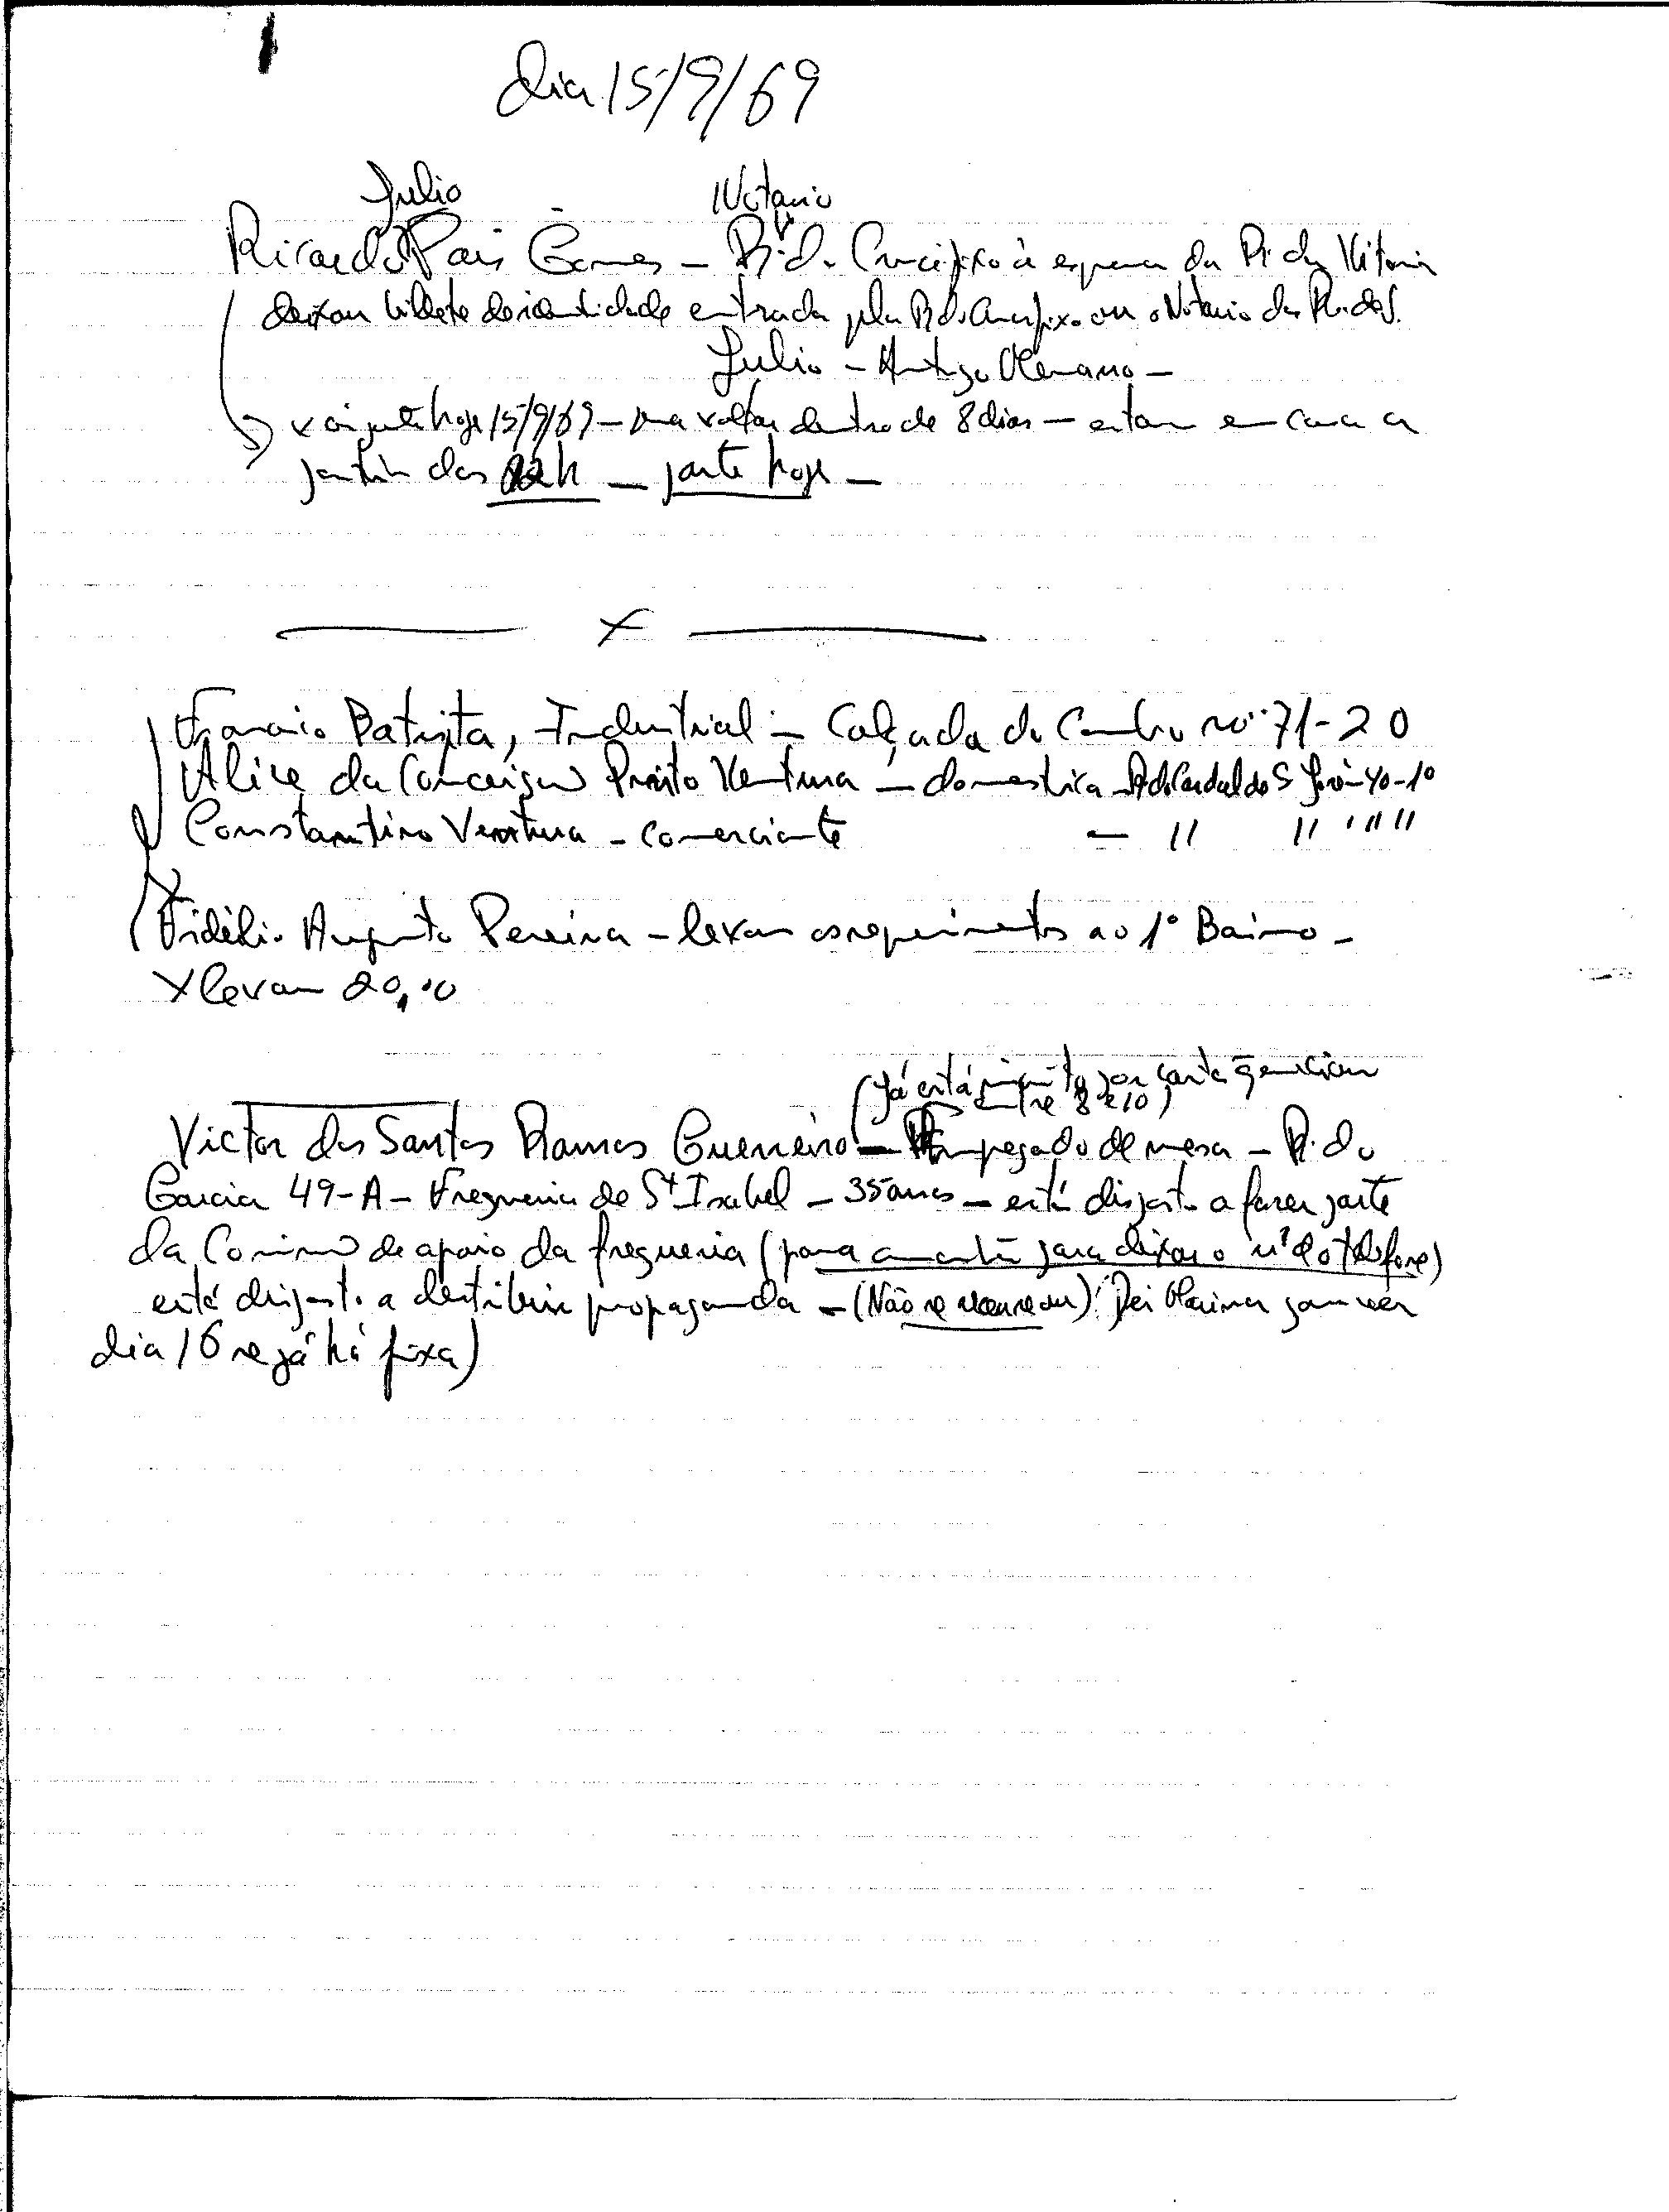 dia 15/9/69
Julio Notario
Ricardo Pais Gomes - R. do Crucifixo à esquina da R. da Vitoria
deixou bilhete de identidade entrada pela R. do Crucifixo ou o Notario da R. de S.
Julio - Antigo
hoje 15/9/69 - voltar dentro de 8 dias - estar em casa a
partir das 22h - parte hoje -
x
Batista, Industrial - Calçada do Combro nº 71-2º
Alice da Conceição Ventura - domestica - R. do Cardal de S. José - 40-1º
Constantino Ventura - comerciante - " " " " "
Fidelio Augusto Pereira - levar os requerimentos ao 1º Bairro -
X levar 20,00
(já está por carta
entre 8 e 10)
Victor dos Santos Ramos Guerreiro - Empregado de mesa - R. do
Garcia 49-A - Freguesia de Stª Isabel - 35 anos - está disposto a fazer parte
da Comissão de apoio da freguesia (para deixar o nº do telefone)
está disposto a distribuir propaganda - (Não se recenseou). Dei para ver
dia 16 se já há fixa)